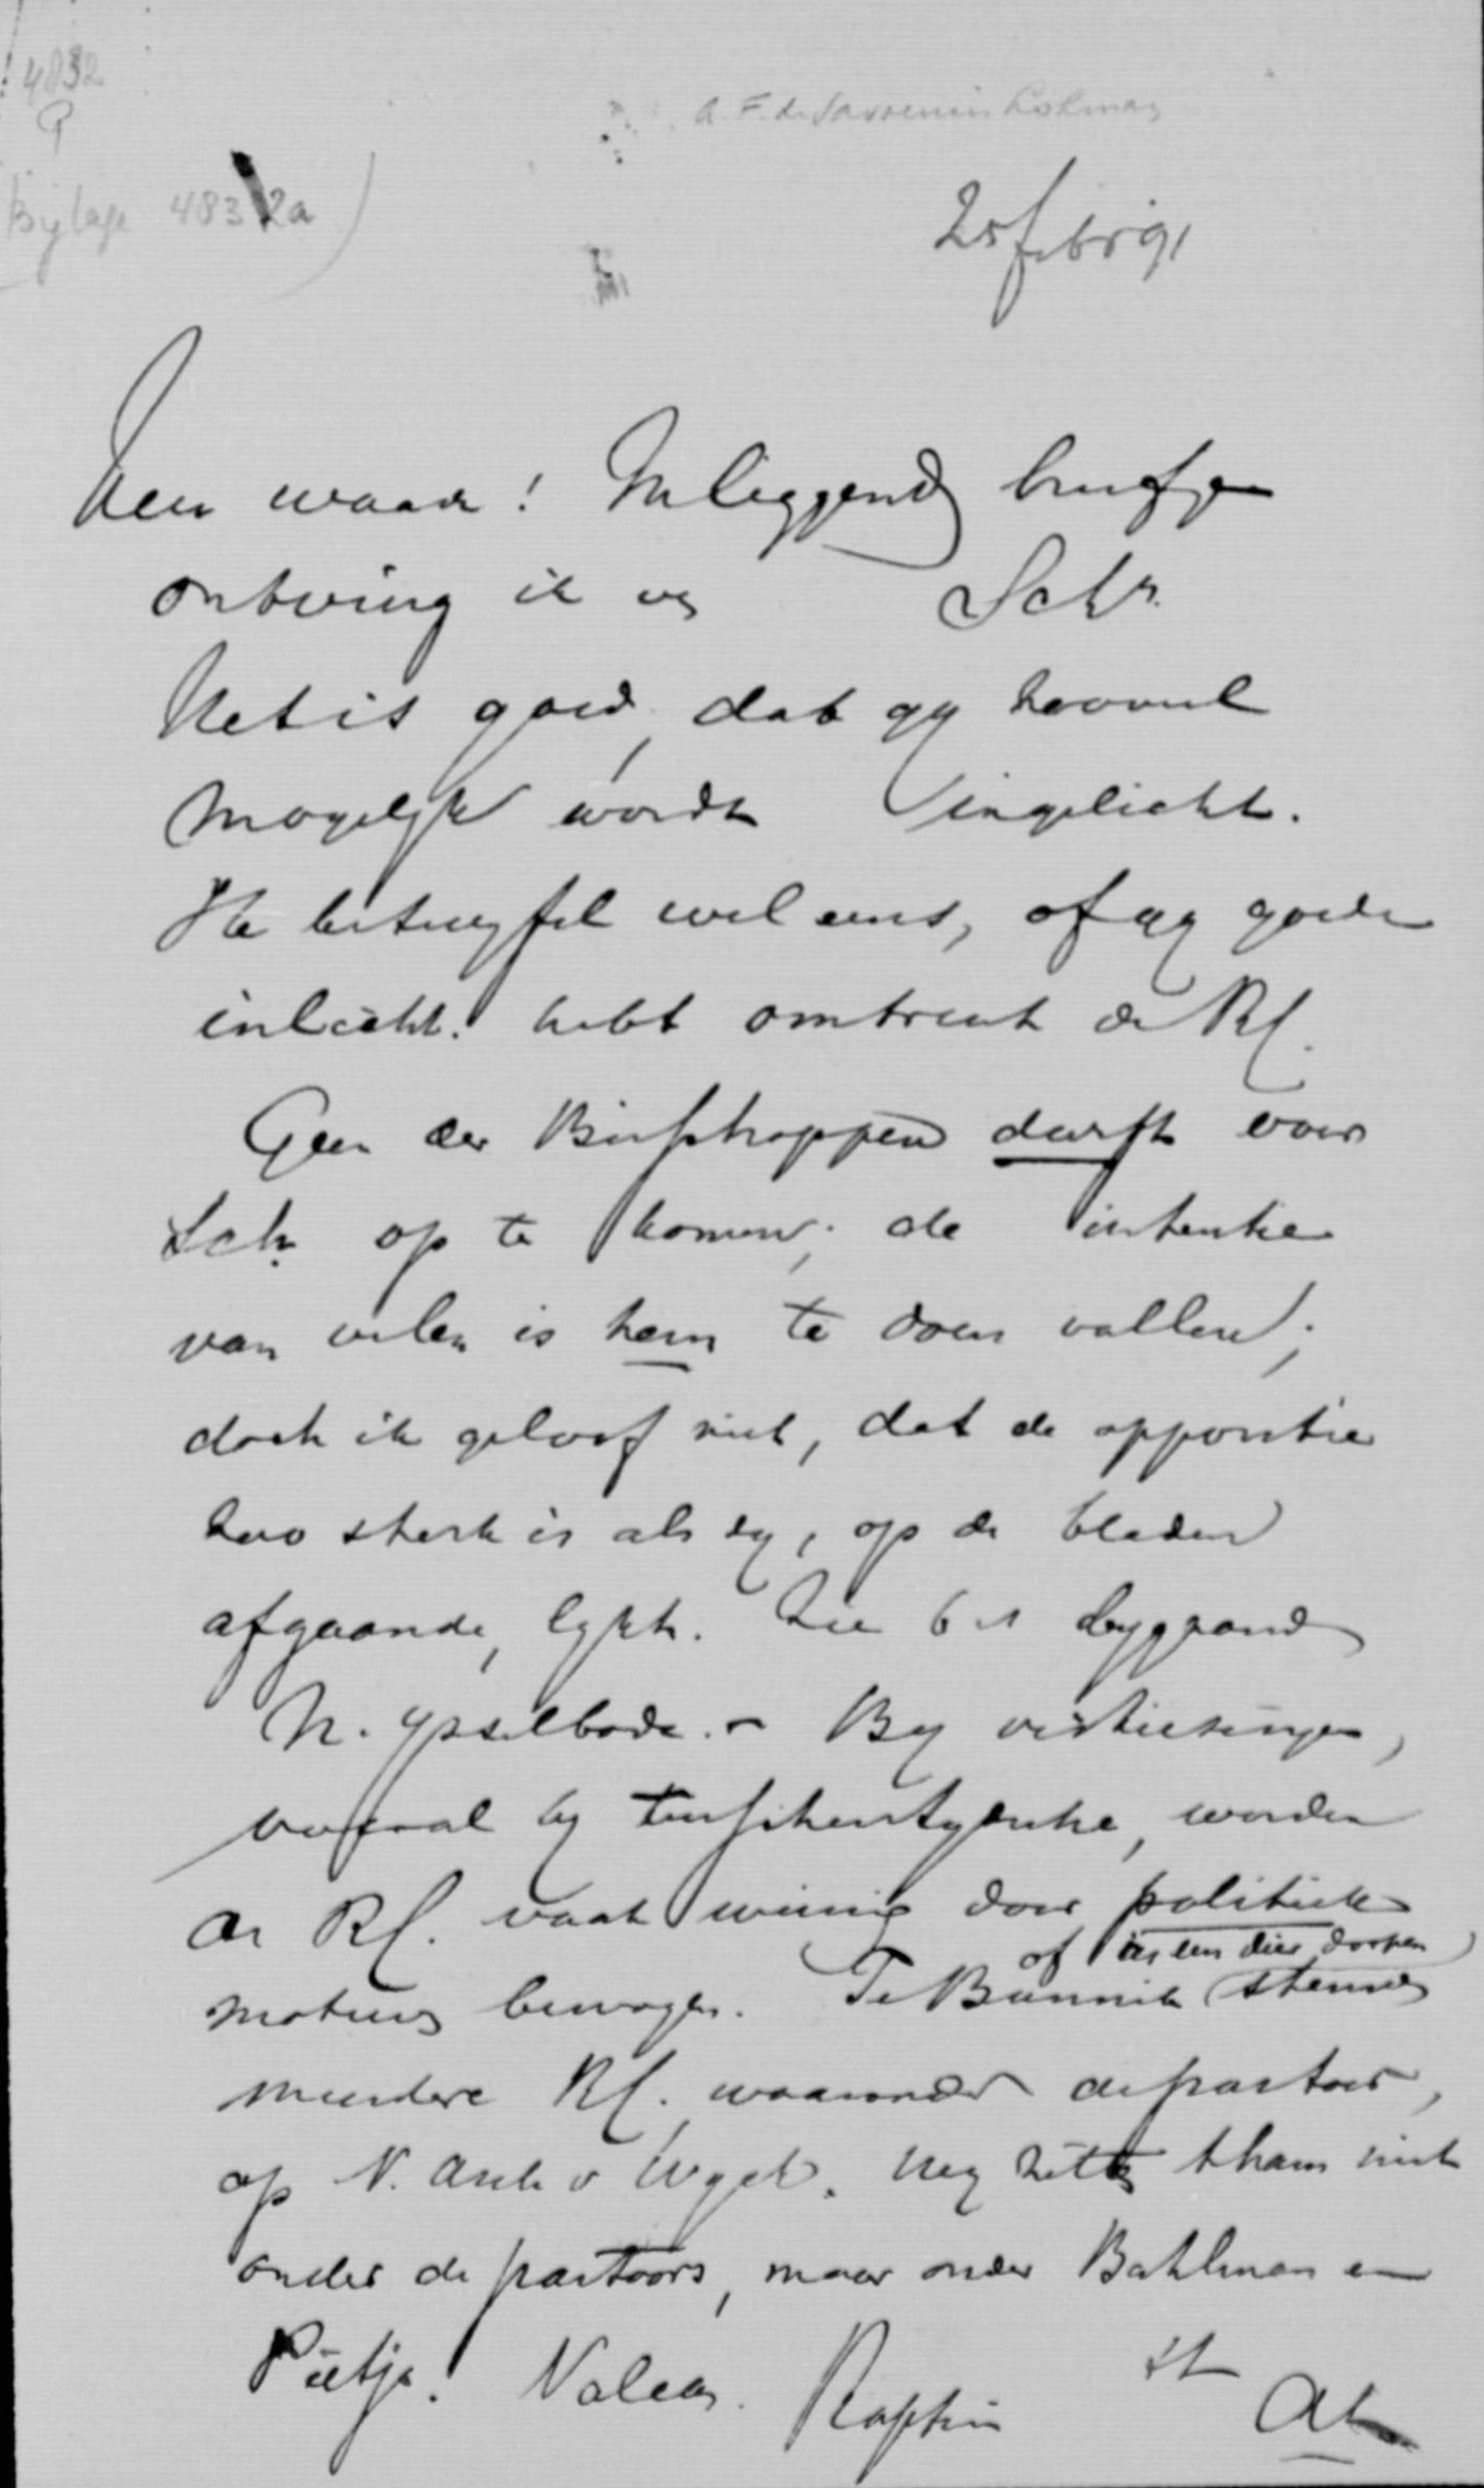 4832
P
Bijlage 4832a)
A. F. de Savornin Lohman
25 febr 91
Zeer waarde! Inliggend briefje
ontving ik v. Sch.
Het is goed, dat gy zooveel
mogelyk wordt ingelicht.
Ik betwyfel wel eens, of gy goede
inlicht. hebt omtrent de RC.
Geen der Bisschoppen durft voor
Sch. op te komen; de intentie
van velen is hem te doen vallen;
doch ik geloof niet, dat de oppositie
zoo sterk is als zy, op de bladen
afgaande, lykt. Zie bv bygaand
N. Ysselbode. - By verkiezingen,
vooral by tusschentydsche, worden
de RC. vaak weinig door politieke
motieven bewogen. Te Bunnik stemden
of in een dier dorpen
meerdere RC. waaronder de pastoor,
op N. Asch v Wyck. Nog zit thans niet
onder de pastoors, maar onder Bahlman en
Pietje! Valeas. Raptim
tt
AL